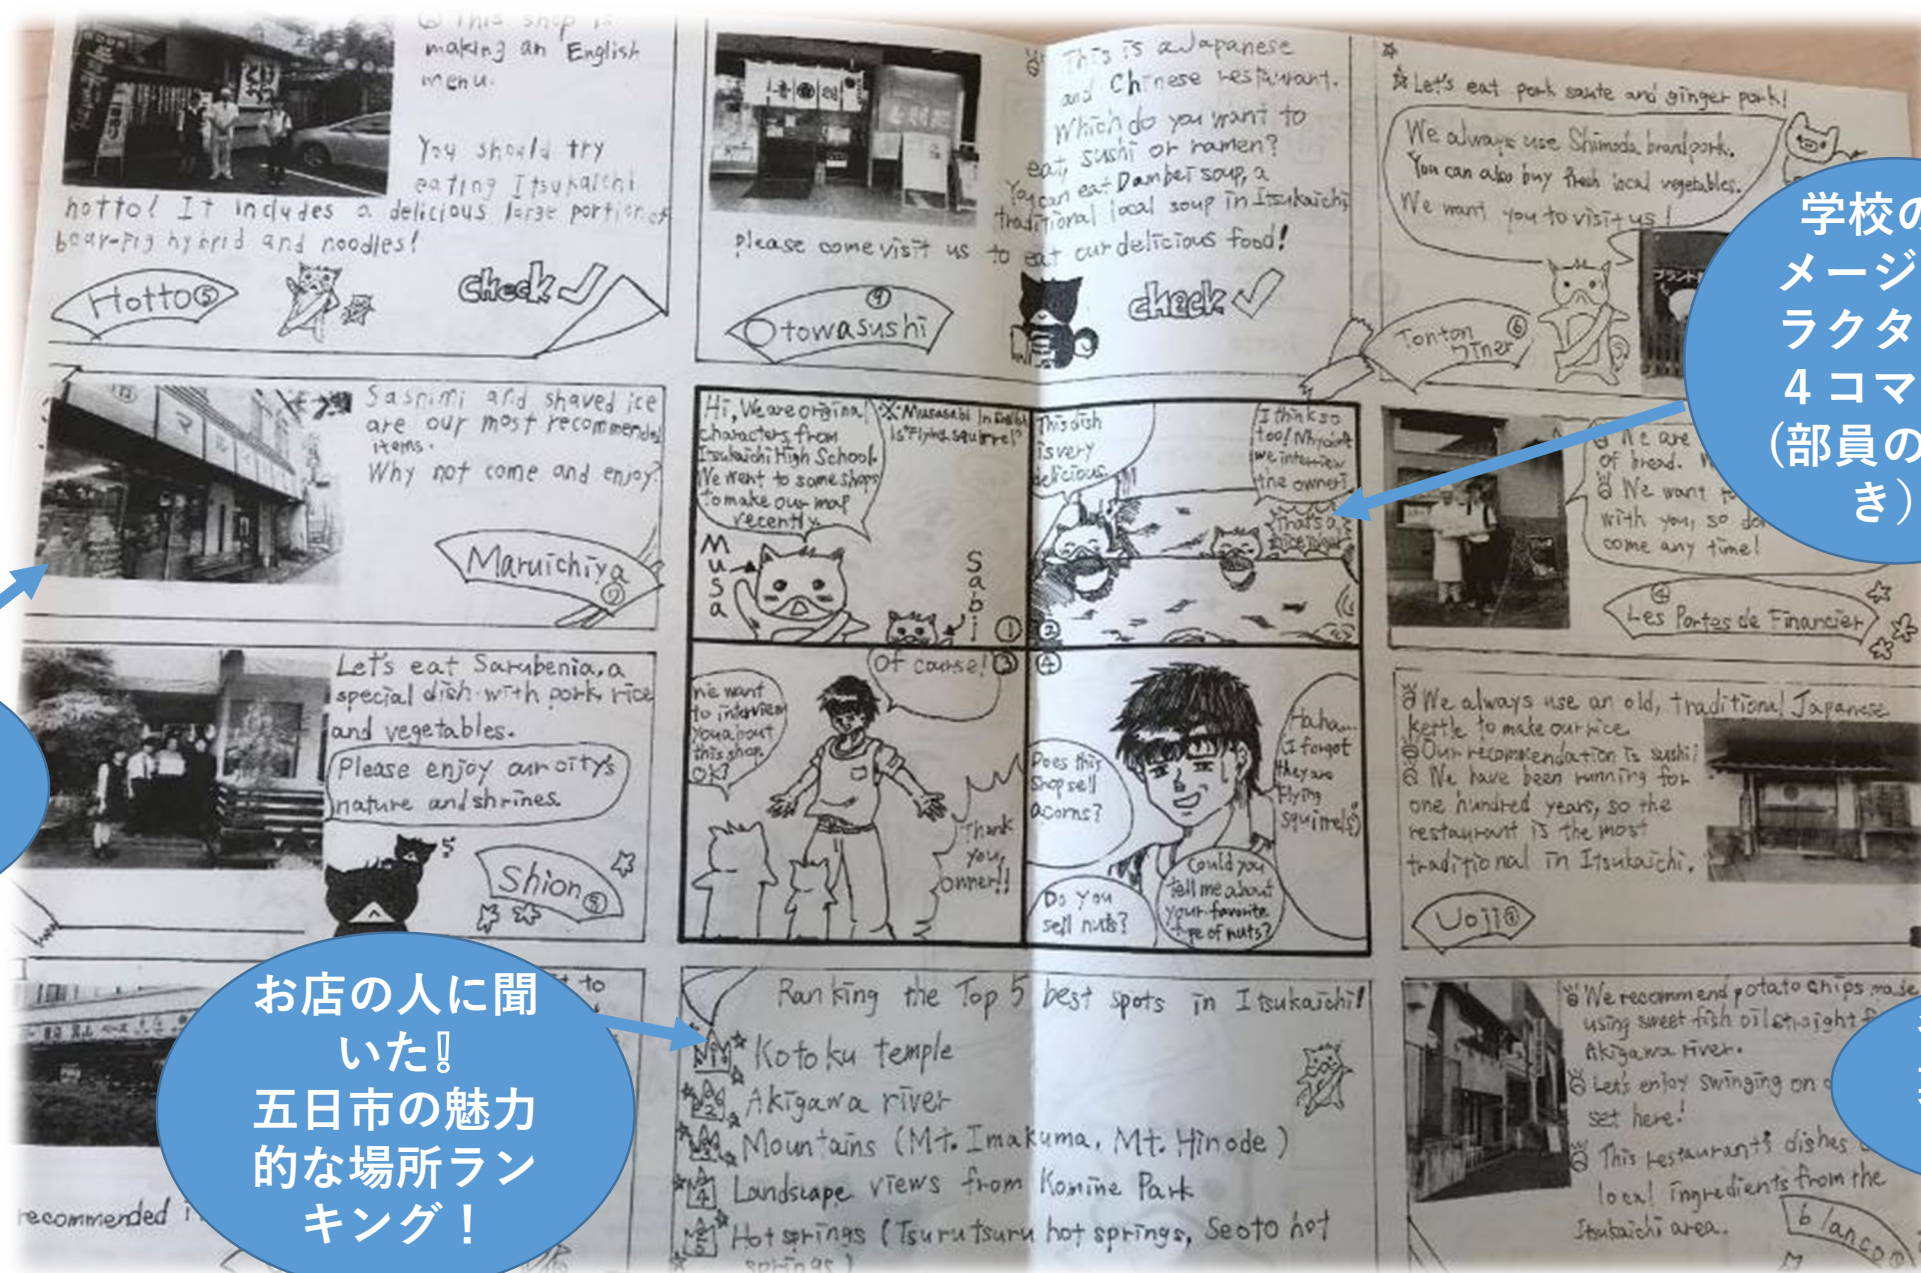 This shop is
making an English
menu.
You should try
eating Itsukaichi
hotto! It includes a delicious large portion of
boar-pig hybrid and noodles!
Hotto⑤
Check
This is a Japanese
and Chinese restaurant.
Which do you want to
eat, sushi or ramen?
You can eat Dambei soup, a
traditional local soup in Itsukaichi
please come visit us to eat our delicious food!
⑨
Otowasushi
check
Let's eat pork saute and ginger pork!
We always use Shimoda brand pork.
You can also buy fresh local vegetables.
We want you to visit us!
Tonton ⑥
Diner
学校の
メージ
ラクタ
４コマ
(部員の
き)
Sashimi and shaved ice
are our most recommended
items.
Why not come and enjoy?
Maruichiya
Hi, We are original
characters from
Itsukaichi High School.
We went to some shops
to make our map
recently.
※Musasabi in English
is "Flying squirrel"
Musa
Sabi
①
This dish
is very
delicious.
I think so
too! Why don't
we interview
the owner?
That's a
nice idea!
②
We are
of bread. W
We want to
with you, so do
come any time!
④
Les Portes de Financier
Let's eat Sarubenia, a
special dish with pork, rice
and vegetables.
Please enjoy our city's
nature and shrines.
Shion⑧
We want
to interview
you about
this shop.
OK?
Of course!
③
Thank
you,
owner!!
④
Does this
shop sell
acorns?
Haha...
(I forgot
they are
flying
squirrels)
Do you
sell nuts?
Could you
tell me about
your favorite
type of nuts?
We always use an old, traditional Japanese
kettle to make our rice.
Our recommendation is sushi!
We have been running for
one hundred years, so the
restaurant is the most
traditional in Itsukaichi.
Uoji
to
お店の人に聞
いた‼
五日市の魅力
的な場所ラン
キング！
recommended i
Ranking the Top 5 best spots in Itsukaichi!
No.1 Kotoku temple
No.2 Akigawa river
No.3 Mountains (Mt. Imakuma, Mt. Hinode)
No.4 Landscape views from Komine Park
No.5 Hot springs (Tsurutsuru hot springs, Seoto hot
springs)
We recommend potato chips made
using sweet fish oil straight f
Akigawa river.
Let's enjoy swinging on
set here!
This restaurant's dishes
local ingredients from the
Itsukaichi area.
blanco